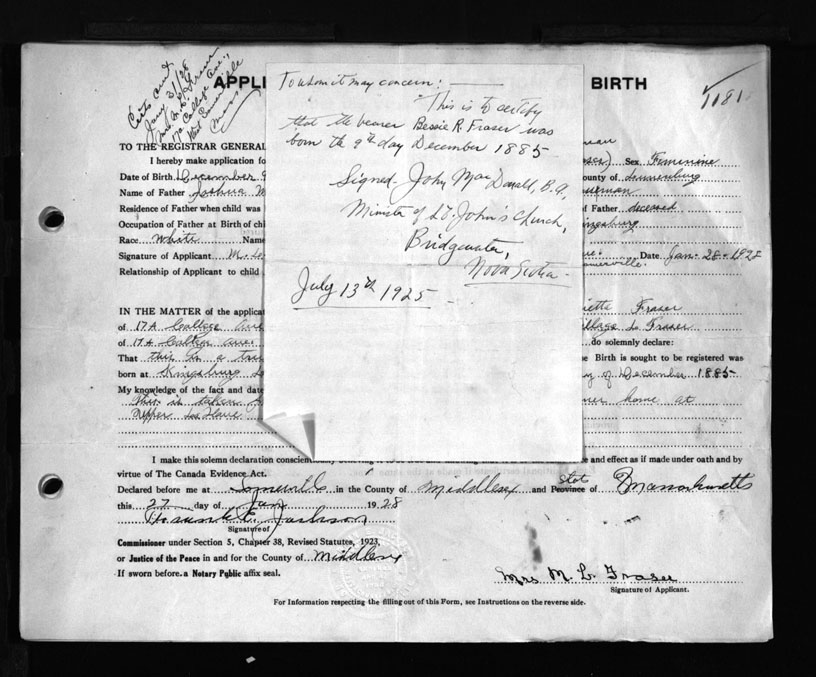 Certs sent
Jany 31/28
Mrs M. L. Fraser
17A College Ave.,
West Somerville
Mass
APPLI
BIRTH
1181
To whom it may concern: —
This is to certify
that the bearer Bessie R. Fraser was
born the 9th day December 1885
Signed John MacDonald, B.A.,
Minister of St. John's Church,
Bridgewater,
Nova Scotia
July 13th 1925
TO THE REGISTRAR GENERAL
I hereby make application fo
Sex Feminine
Date of Birth December 9
ounty of Lunenburg
Name of Father Joshua M
Residence of Father when child was
f Father deceased
Occupation of Father at Birth of chi
Kingsburg
Race White Name
Signature of Applicant M. L.
Date Jan. 28. 1928
Relationship of Applicant to child
Somerville.
IN THE MATTER of the applicat
etta Fraser
of 17A College Ave
Fraser
of 17A College Ave
do solemnly declare:
That this is a true
e Birth is sought to be registered was
born at Kingsburg
y of December 1885
My knowledge of the fact and date
This is taken
home at
Upper La Have
I make this solemn declaration conscientiously
e and effect as if made under oath and by
virtue of The Canada Evidence Act.
Declared before me at Somerville in the County of Middlesex and State Province of Massachusetts
this 27 day of Jan 1928
Jackson
Signature of
Commissioner under Section 5, Chapter 38, Revised Statutes, 1923,
or Justice of the Peace in and for the County of Middlesex
If sworn before a Notary Public affix seal.
Mrs M. L. Fraser
Signature of Applicant.
For Information respecting the filling out of this Form, see Instructions on the reverse side.